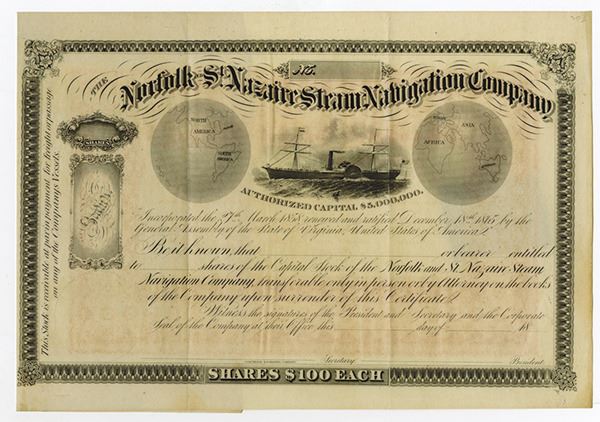 No.
THE
Norfolk & St. Nazaire Steam Navigation Company
SHARES
NORTH AMERICA
SOUTH AMERICA
AFRICA
ASIA
AUTHORIZED CAPITAL $5,000,000.
This Stock is receivable at par in payment for freight or passage
on any of the Companys Vessels.
Incorporated the 27th March 1858 renewed and ratified December 18th 1865 by the
General Assembly of the State of Virginia, United States of America.
Be it known, that or bearer entitled
to shares of the Capital Stock of the Norfolk and St. Nazaire Steam
Navigation Company, transferable only in person or by Attorney on the books
of the Company upon surrender of this Certificate.
Witness the signatures of the President and Secretary and the Corporate
Seal of the Company at their Office this day of 18
Secretary President
SHARES $100 EACH